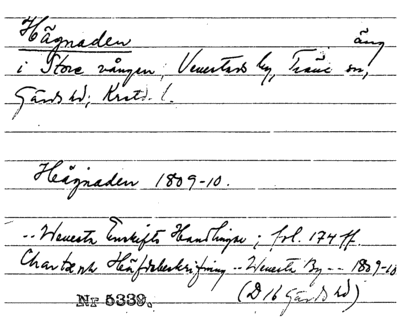 Hägnaden äng
i Store vången, Venestads by, Träne sn,
Gärds hd; Krist. l.
Hägnaden 1809-10.
-- Wenesta Enskifts Handlingar; fol. 174 ff.
Charta och Häfdebeskrifning -- Wenesta By -- 1809-10
Nr 5339. (D 16 Gärds hd)